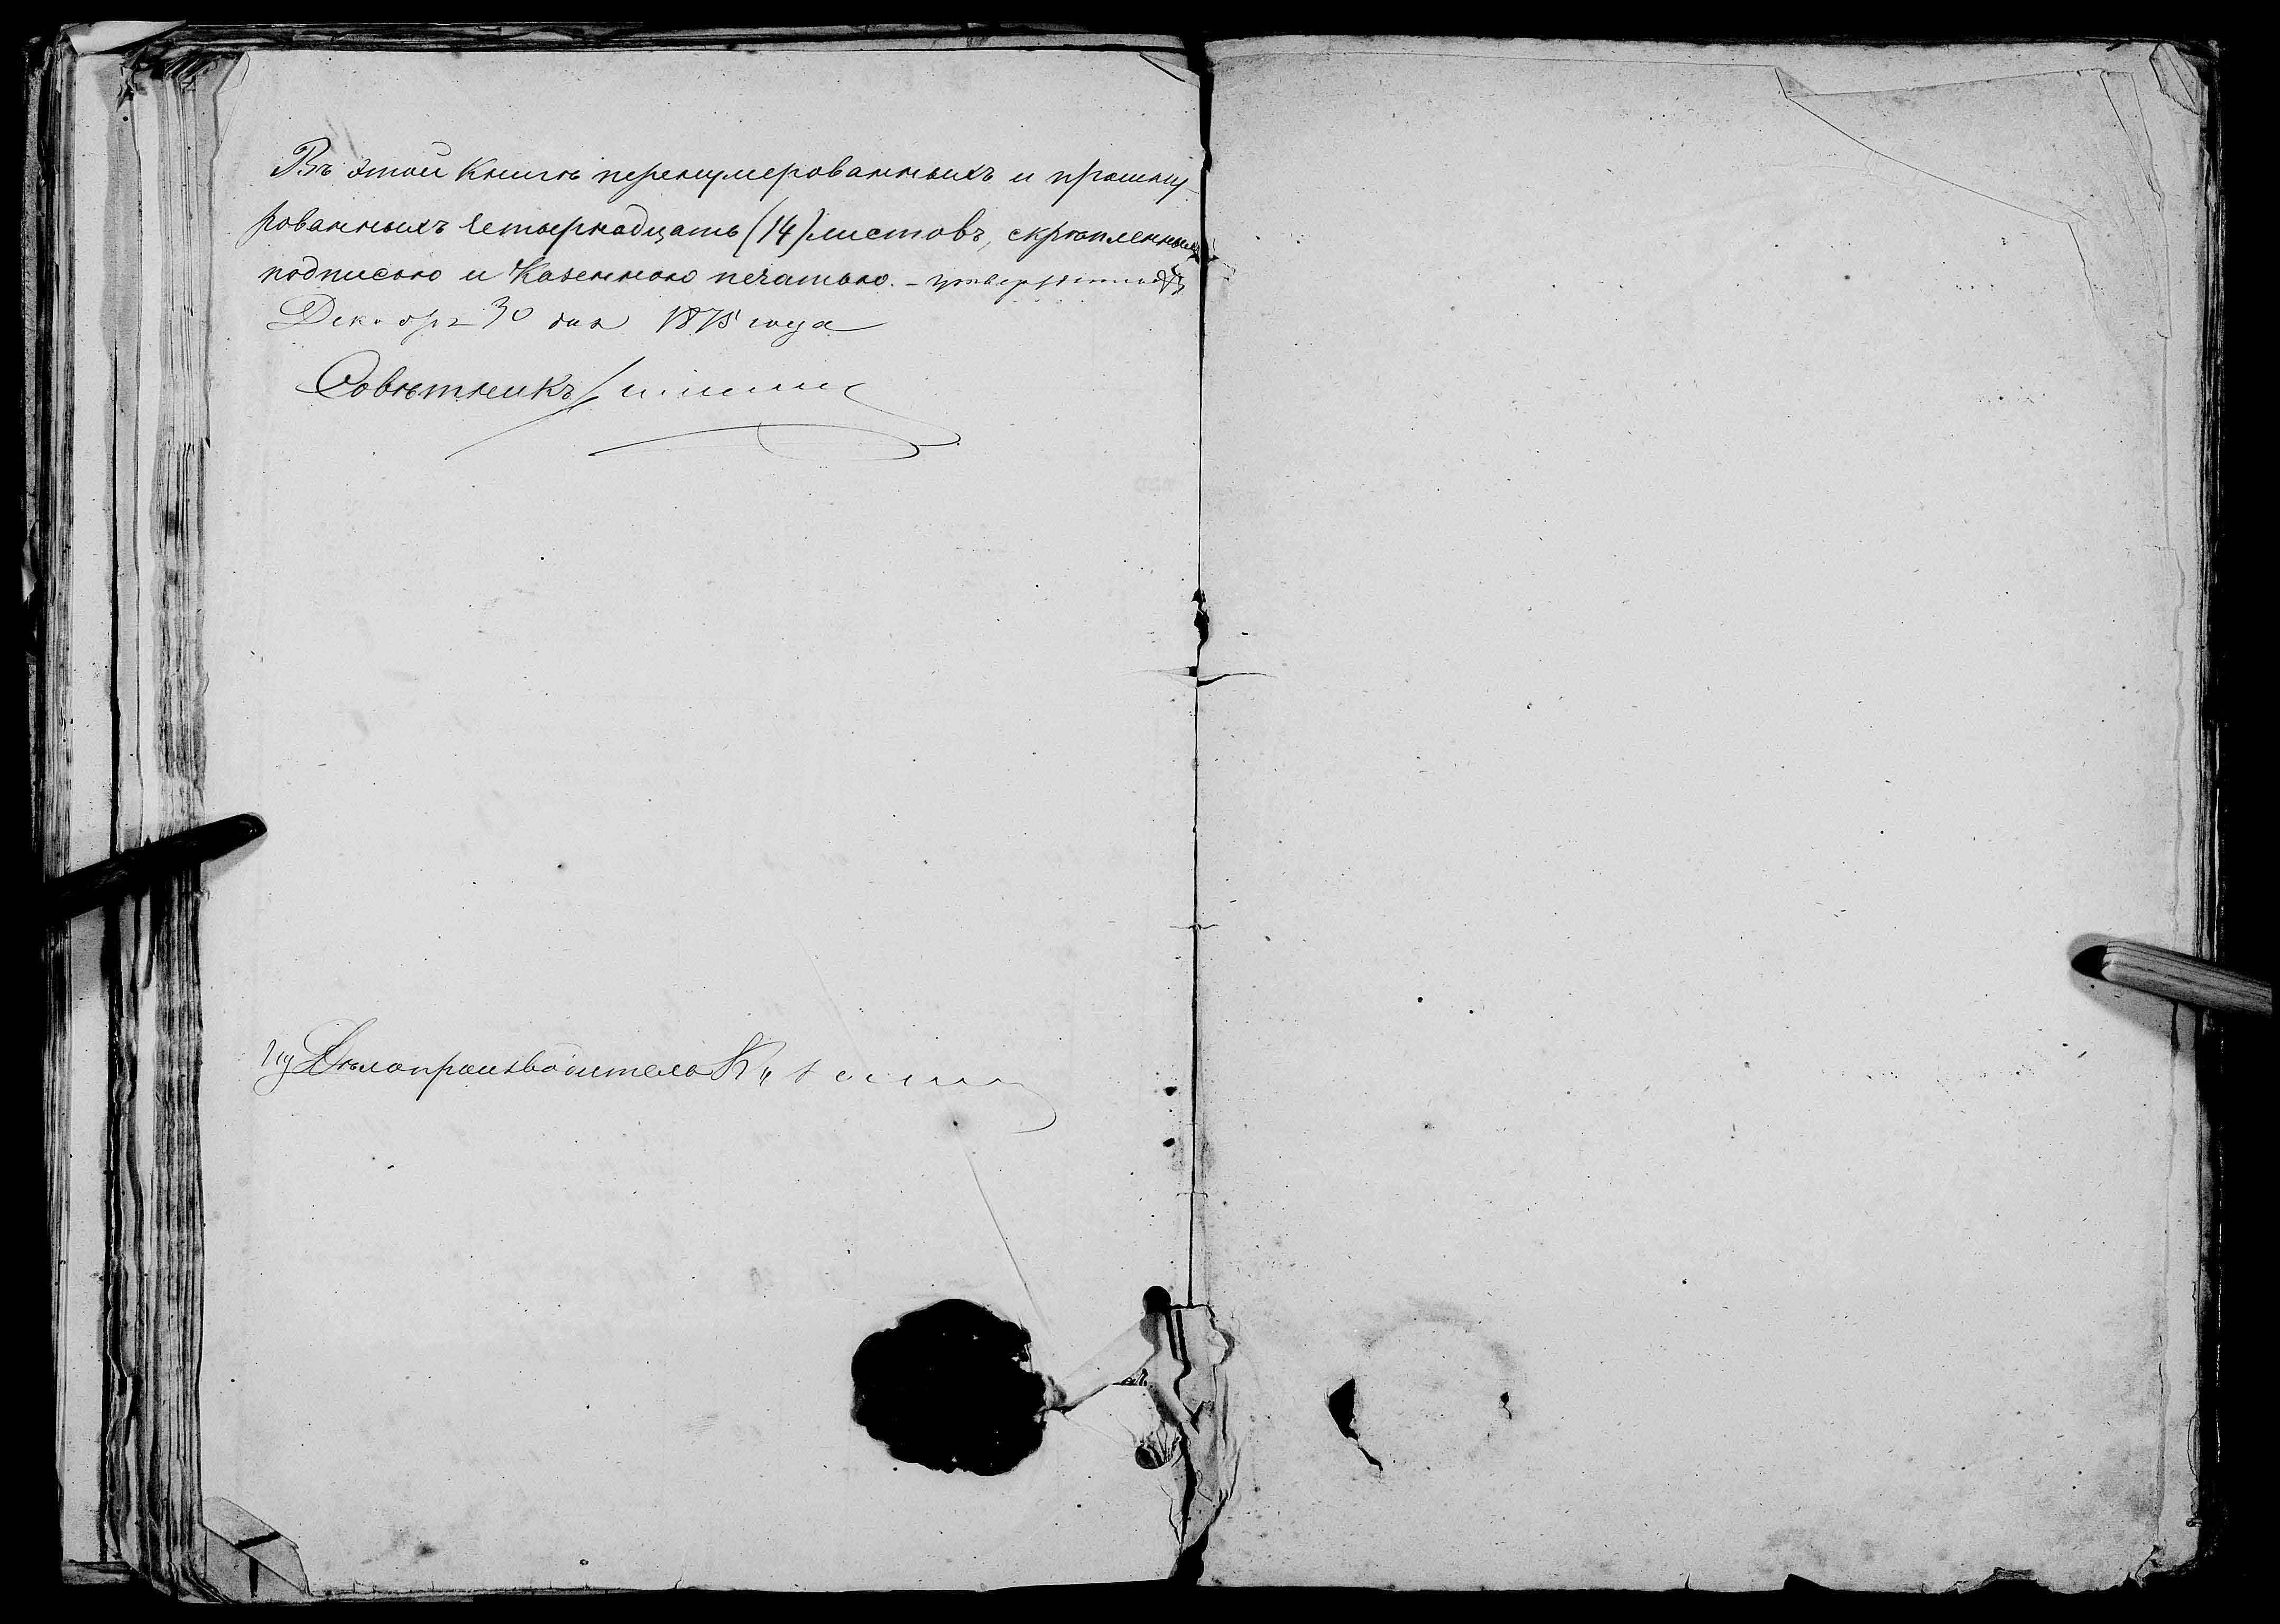 Въ этой Книгѣ перенумерованныхъ и прошну-
рованныхъ четырнадцать (14) листовъ, скрѣпленныхъ
подписью и Казенною печатью. –
Декабря 30 дня 1875 года
Совѣтникъ
Дѣлопроизводитель